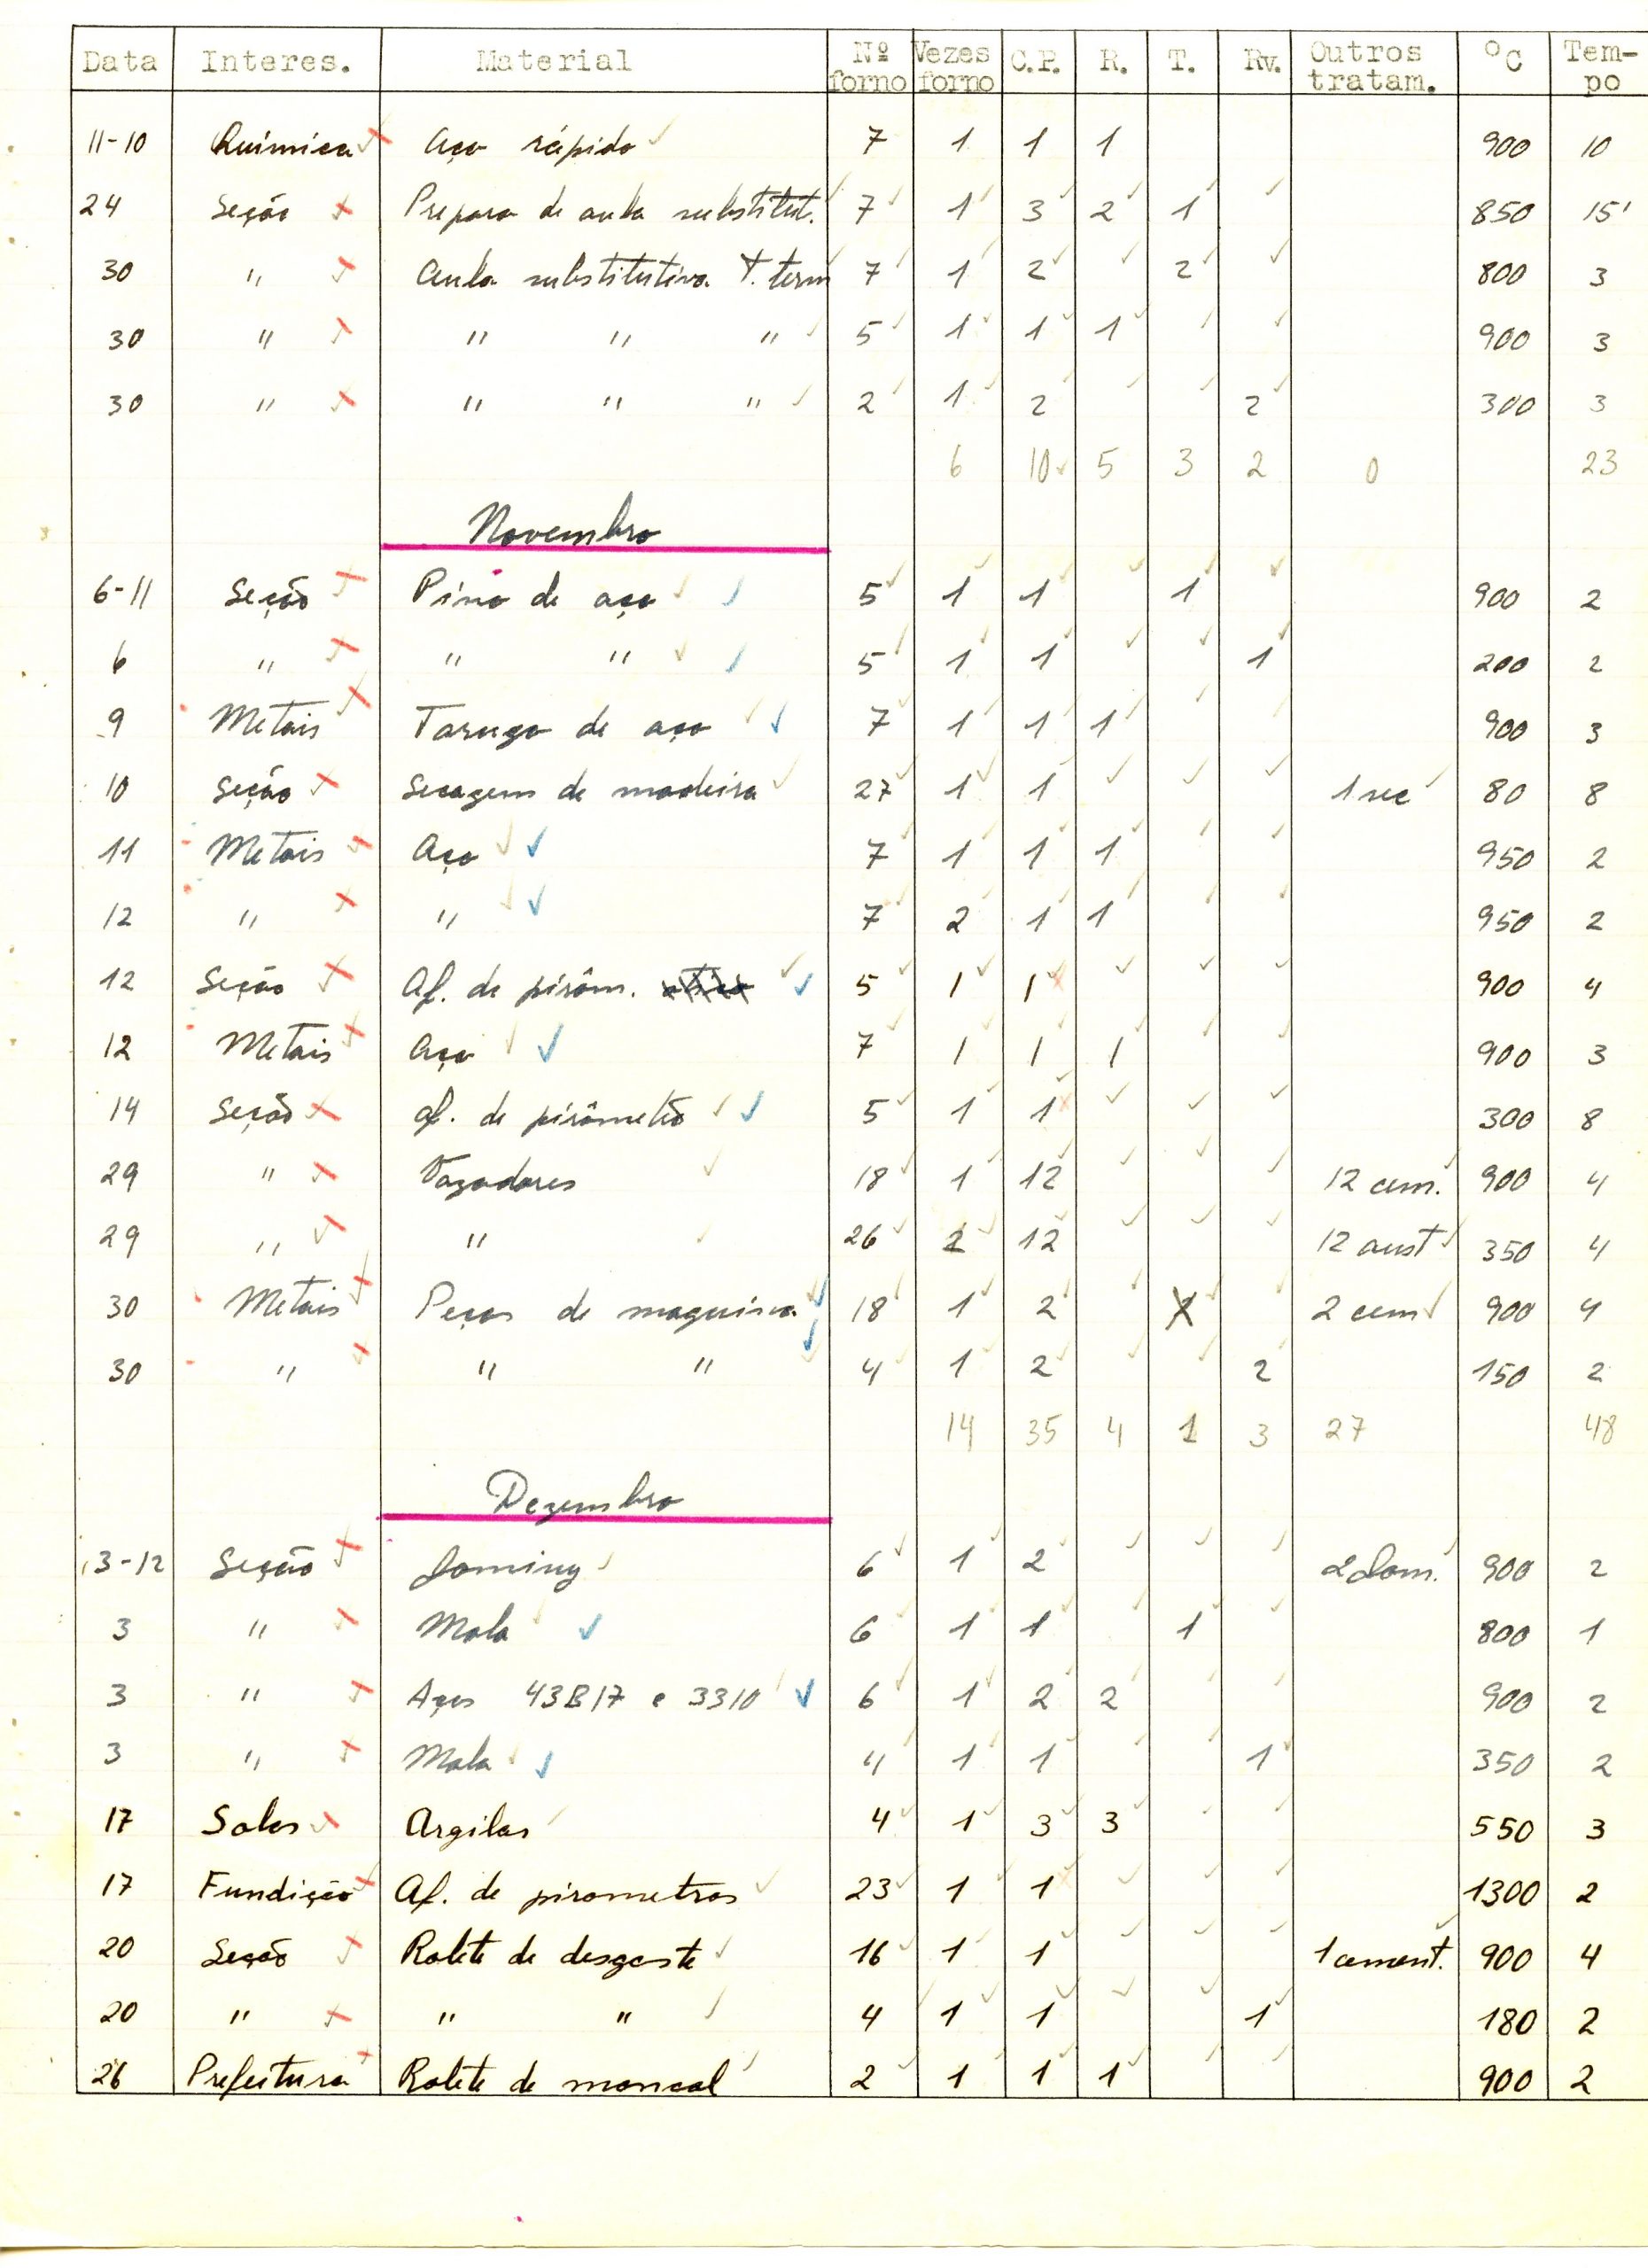 Data Interes. Material Nº forno Vezes forno C.P. R. T. Rv. Outros tratam. ºC Tempo
11-10 Química Aço rápido 7 1 1 1 900 10
24 Seção Preparo de aula substitut. 7 1 3 2 1 850 15'
30 " Aula substitutiva T. term 7 1 2 2 800 3
30 " " " " 5 1 1 1 900 3
30 " " " " 2 1 2 2 300 3
6 10 5 3 2 0 23
Novembro
6-11 Seção Pino de aço 5 1 1 1 900 2
6 " " " 5 1 1 1 200 2
9 Metais Tarugo de aço 7 1 1 1 900 3
10 Seção Secagem de madeira 27 1 1 1 sec 80 8
11 Metais Aço 7 1 1 1 950 2
12 " " 7 2 1 1 950 2
12 Seção Af. de pirôm. 5 1 1 900 4
12 Metais Aço 7 1 1 1 900 3
14 Seção Af. de pirômetro 5 1 1 300 8
29 " Vazadores 18 1 12 12 cem. 900 4
29 " " 26 1 12 12 aust 350 4
30 Metais Peças de maquina 18 1 2 2 cem 900 4
30 " " " 4 1 2 2 150 2
14 35 4 1 3 27 48
Dezembro
3-12 Seção Jominy 6 1 2 2 Jom. 900 2
3 " Mola 6 1 1 1 800 1
3 " Aços 43B17 e 3310 6 1 2 2 900 2
3 " Mola 4 1 1 1 350 2
17 Solos Argilas 4 1 3 3 550 3
17 Fundição Af. de pirometros 23 1 1 1300 2
20 Seção Rolete de desgaste 16 1 1 1 cement. 900 4
20 " " " 4 1 1 1 180 2
26 Prefeitura Rolete de moncal 2 1 1 1 900 2